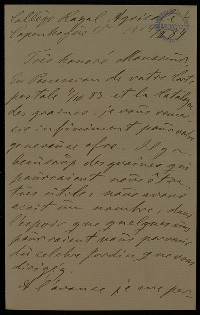 Collège Royal Agricole
Copenhague
Très honoré Monsieur,
En Possession de votre Cart
postale 4/10 83 et la Catalog
des graines, je vous remer-
cie infiniment pour votre
genereuse offre. Il y a
beaucoup des graines qui
pourraient nous être
très utiles, nous avons
écrit un nombre, dans
l'espoir que quelques uns
pourraient nous parvenir
du célèbre Jardin, que vous
dirigez.
A l'avance je me per-